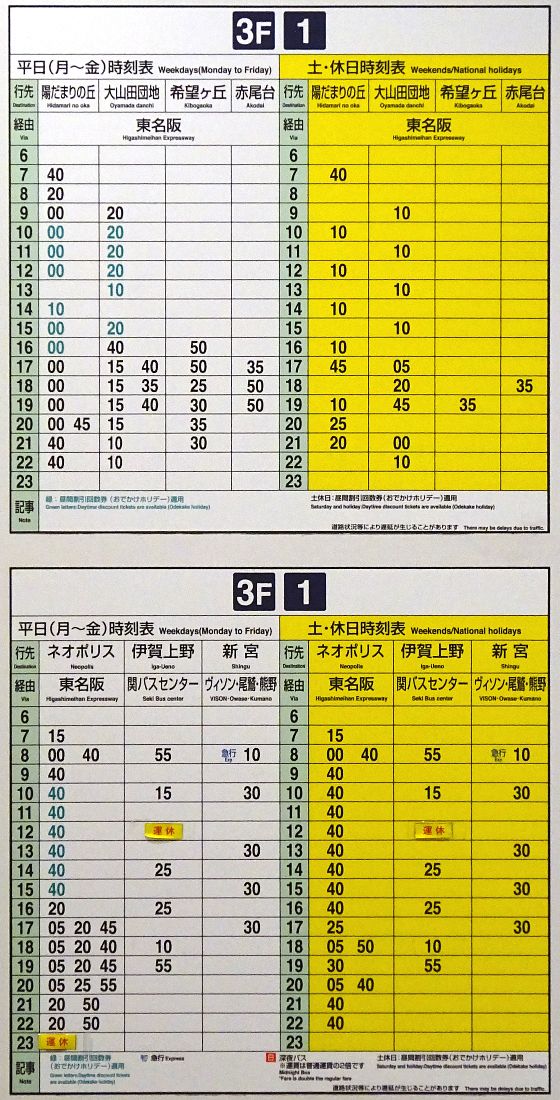 3F 1
平日(月〜金)時刻表 Weekdays(Monday to Friday) 土・休日時刻表 Weekends/National holidays
行先 陽だまりの丘 大山田団地 希望ヶ丘 赤尾台 行先 陽だまりの丘 大山田団地 希望ヶ丘 赤尾台
Destination Hidamari no oka Oyamada danchi Kibogaoka Akodai Destination Hidamari no oka Oyamada danchi Kibogaoka Akodai
経由 東名阪 経由 東名阪
Via Higashimeihan Expressway Via Higashimeihan Expressway
6 6
7 40 7 40
8 20 8
9 00 20 9 10
10 00 20 10 10
11 00 20 11 10
12 00 20 12 10
13 10 13 10
14 10 14 10
15 00 20 15 10
16 00 40 50 16 10
17 00 15 40 50 35 17 45 05
18 00 15 35 25 50 18 20 35
19 00 15 40 30 50 19 10 45 35
20 00 45 15 35 20 25
21 40 10 30 21 20 00
22 40 10 22 10
23 23
記事 緑:昼間割引回数券(おでかけホリデー)適用 土休日:昼間割引回数券(おでかけホリデー)適用
Note Green letters:Daytime discount tickets are available (Odekake holiday) Saturday and holiday:Daytime discount tickets are available (Odekake holiday)
道路状況等により遅延が生じることがあります There may be delays due to traffic.
3F 1
平日(月〜金)時刻表 Weekdays(Monday to Friday) 土・休日時刻表 Weekends/National holidays
行先 ネオポリス 伊賀上野 新宮 行先 ネオポリス 伊賀上野 新宮
Destination Neopolis Iga-Ueno Shingu Destination Neopolis Iga-Ueno Shingu
経由 東名阪 関バスセンター ヴィソン・尾鷲・熊野 経由 東名阪 関バスセンター ヴィソン・尾鷲・熊野
Via Higashimeihan Expressway Seki Bus center VISON・Owase・Kumano Via Higashimeihan Expressway Seki Bus center VISON・Owase・Kumano
6 6
7 15 7 15
8 00 40 55 急行 Exp 10 8 00 40 55 急行 Exp 10
9 40 9 40
10 40 15 30 10 40 15 30
11 40 11 40
12 40 運休 12 40 運休
13 40 30 13 40 30
14 40 25 14 40 25
15 40 30 15 40 30
16 20 25 16 40 25
17 05 20 45 30 17 25 30
18 05 20 40 10 18 05 50 10
19 05 20 45 55 19 30 55
20 05 25 55 20 05 40
21 20 50 21 40
22 20 50 22 40
23 運休 23
記事 緑:昼間割引回数券 急行 Express 深夜バス 土休日:昼間割引回数券(おでかけホリデー)適用
Note (おでかけホリデー)適用 ※運賃は普通運賃の2倍です Saturday and holiday:Daytime discount tickets are available (Odekake holiday)
Green letters:Daytime discount tickets Midnight Bus
are available (Odekake holiday) *Fare is double the regular fare
道路状況等により遅延が生じることがあります There may be delays due to traffic.